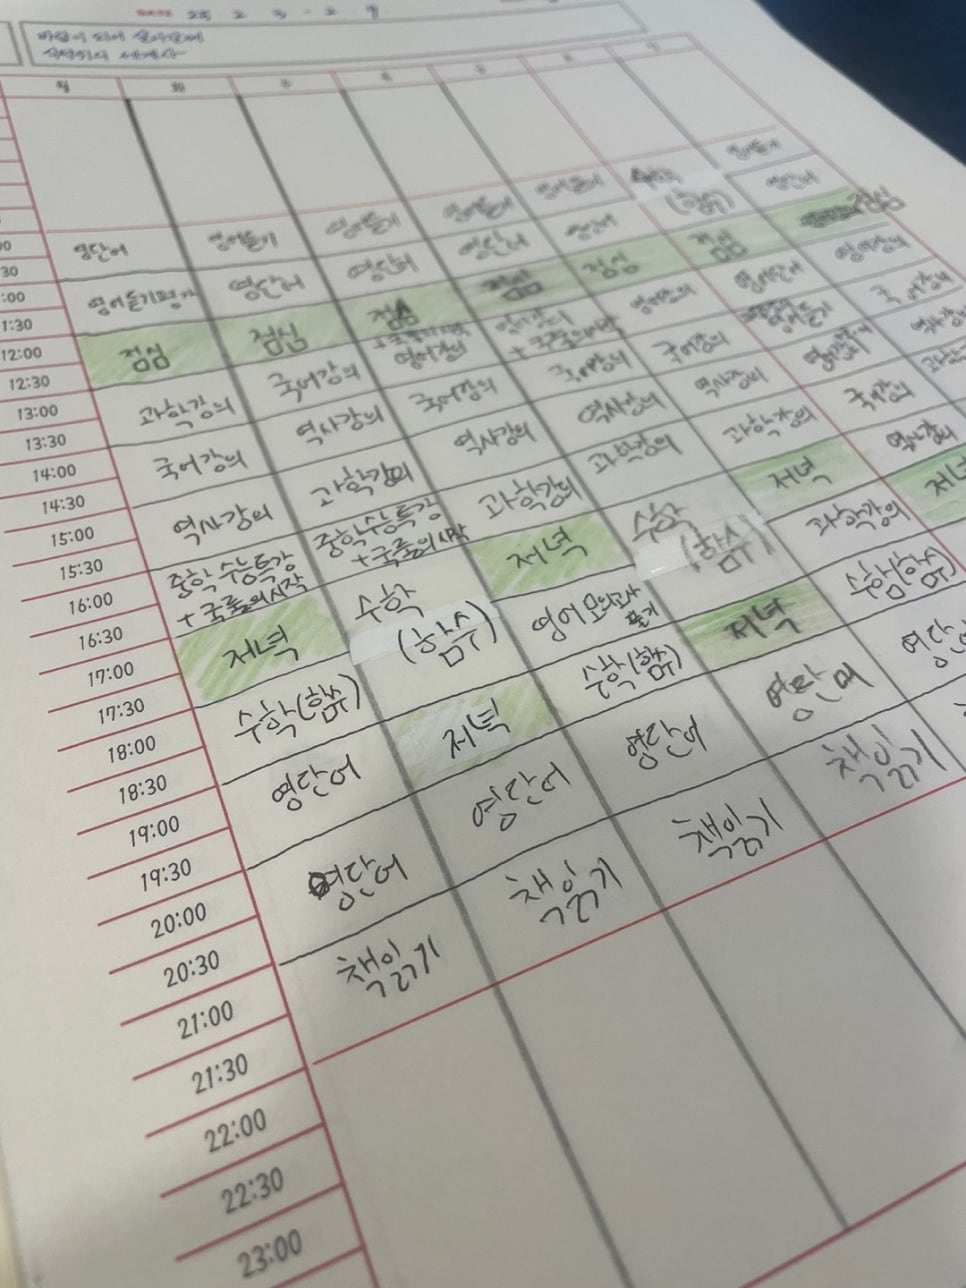 25 2 3 - 2 9
월 화 수 목 금 토 일
영어듣기
영어듣기 영어듣기 영어듣기 영어듣기 (함수) 영단어
영단어 영단어 영단어 영단어 점심 점심
영어듣기평가 영단어 점심 영어강의
점심 점심 점심 영어강의 영단어 국어강의
+국룰의시작 영어강의 +국룰의시작 국어강의 영어듣기 역사강의
과학강의 국어강의 국어강의 국어강의 역사강의
국어강의 역사강의 역사강의 역사강의 과학강의 국어강의
역사강의 과학강의 과학강의 과학강의 저녁 역사강의
중학수능특강 중학수능특강 저녁 수학 과학강의 저녁
+국룰의시작 +국룰의시작 (함수)
저녁 수학 영어 모의고사 풀기 저녁 수학(함수)
(함수)
수학(함수) 저녁 수학(함수) 영단어 영단
영단어 영단어 영단어 책읽기
영단어 책읽기 책읽기
책읽기
00
30
:00
1:30
12:00
12:30
13:00
13:30
14:00
14:30
15:00
15:30
16:00
16:30
17:00
17:30
18:00
18:30
19:00
19:30
20:00
20:30
21:00
21:30
22:00
22:30
23:00